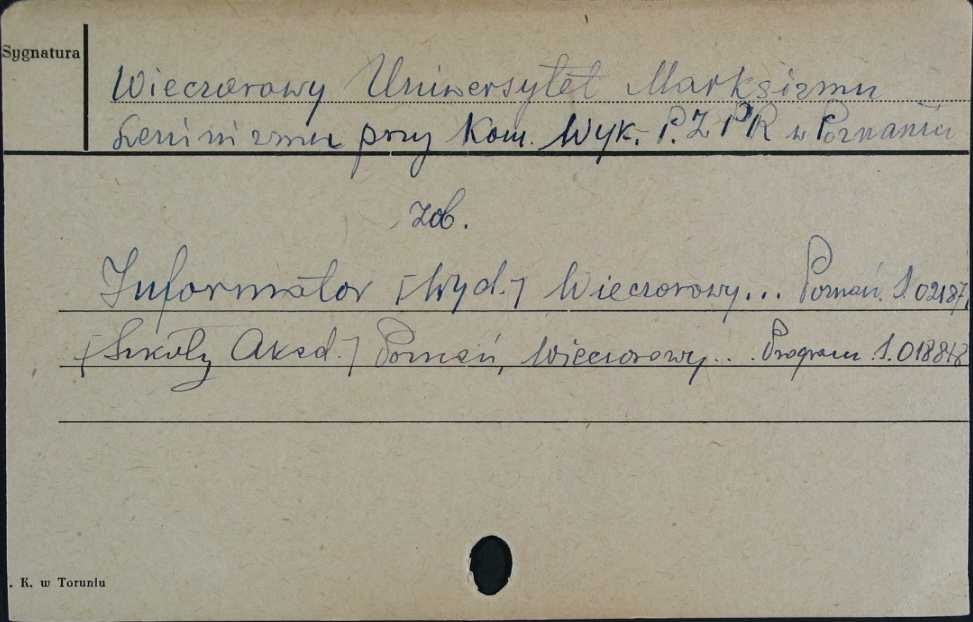 Sygnatura
Wieczorowy Uniwersytet Marksizmu
Leninizmu przy Kom. Wyk. P.Z.P.R w Poznaniu
zob.
Informator [Wyd.] Wieczorowy... Poznań.
[Szkoły Akad.] Poznań, Wieczorowy... Program
. K. w Toruniu